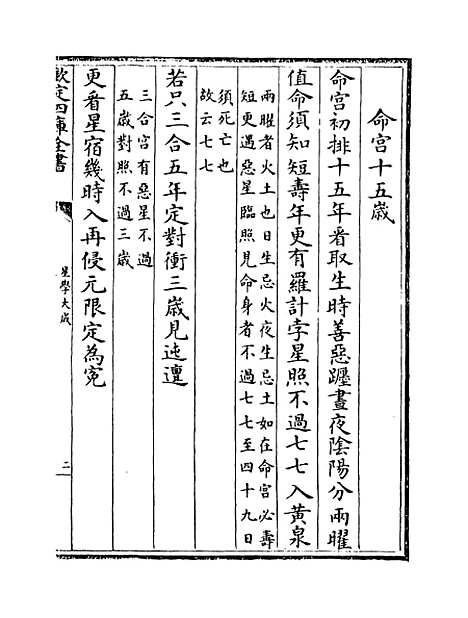 命宫十五歳
命宫初排十五年看取生時善惡躔晝夜陰陽分兩曜
值命須知短壽年更有羅計孛星照不過七七入黄泉
兩曜者火土也日生忌火夜生忌土如在命宫必壽
短更遇惡星臨照見命身者不過七七至四十九日
須死亡也
故云七七
若只三合五年定對衝三歳見迍邅
三合宫有惡星不過
五歳對照不過三歳
更看星宿幾時入再侵元限定為寃
欽定四庫全書
星學大成
二